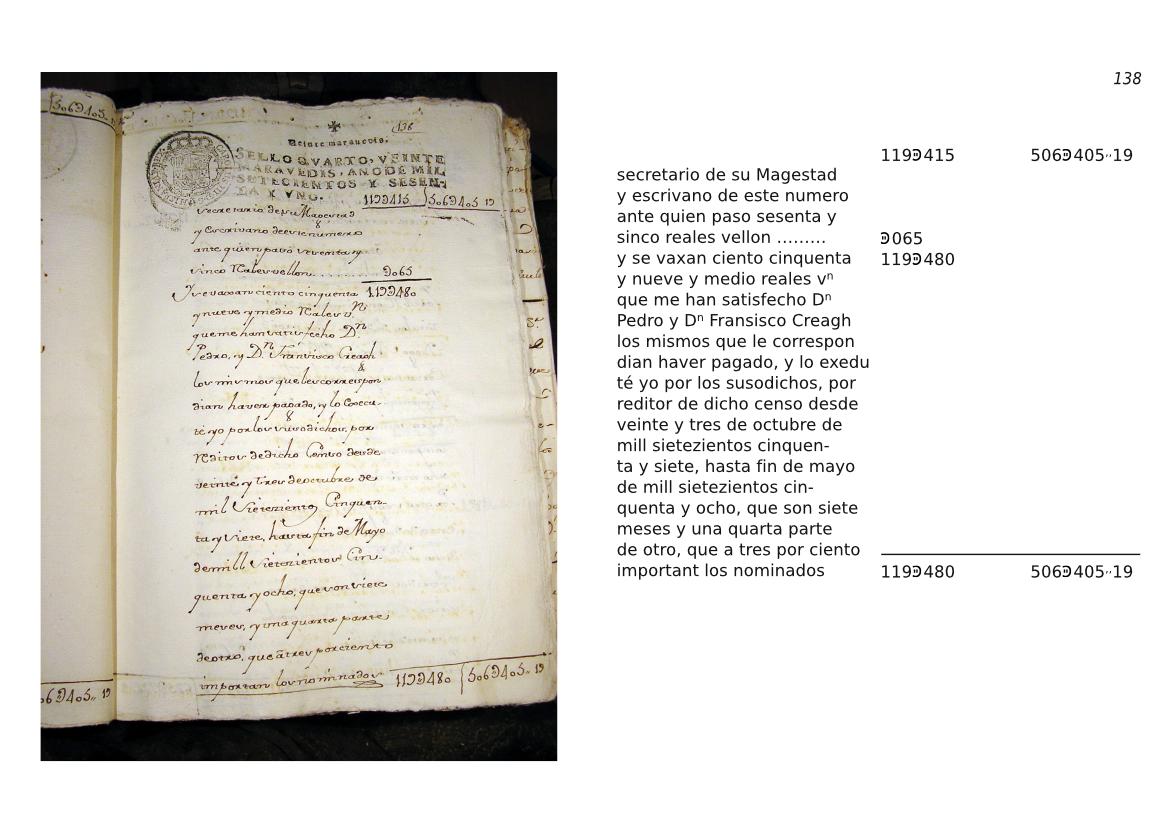 5069405,, 19
✠
138
Veinte maravedis.
SELLO QVARTO, VEINTE
MARAVEDIS, ANO DE MIL
SETECIENTOS Y SESEN-
TA Y VNO.
119Ↄ415 506Ↄ405 19
secretario de su Magestad
y Escrivano de este numero
ante quien pasó sesenta y
sinco Reales vellon........... Ↄ065
Y se vaxan ciento cinquenta 119Ↄ480
y nueve y medio Reales vⁿ
que me han satisfecho Dⁿ
Pedro, y Dⁿ Fransisco Creagh
los mismos que les correspon
dian haver pagado, y lo Execu-
té yo por los susodichos, por
Reditos de dicho Censo desde
veinte y tres de octubre de
mil Sietezientos Cinquen-
ta y Siete, hasta fin de Mayo
de mill Sietezientos Cin-
quenta y ocho, que son siete
meses, y una quarta parte
de otro, que á tres por ciento
importan los nominados 119Ↄ480 506Ↄ405,, 19
06Ↄ405,, 19
138
119Ↄ415 506Ↄ405,,19
secretario de su Magestad
y escrivano de este numero
ante quien paso sesenta y
sinco reales vellon ......... Ↄ065
y se vaxan ciento cinquenta 119Ↄ480
y nueve y medio reales vⁿ
que me han satisfecho Dⁿ
Pedro y Dⁿ Fransisco Creagh
los mismos que le correspon
dian haver pagado, y lo exedu
té yo por los susodichos, por
reditor de dicho censo desde
veinte y tres de octubre de
mill sietezientos cinquen-
ta y siete, hasta fin de mayo
de mill sietezientos cin-
quenta y ocho, que son siete
meses y una quarta parte
de otro, que a tres por ciento
important los nominados 119Ↄ480 506Ↄ405,,19